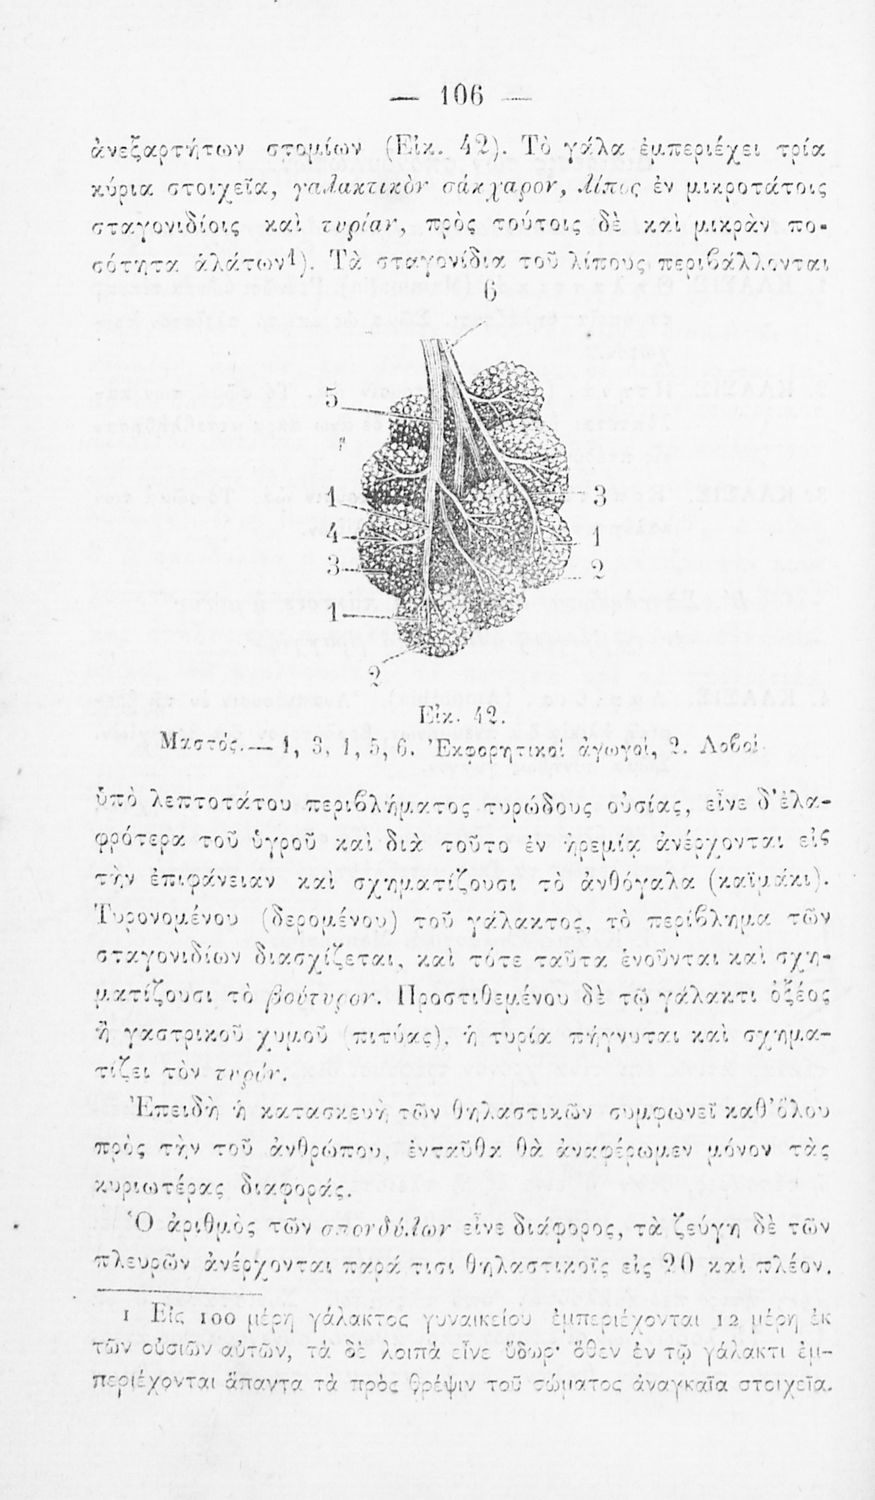 — 106 —
ἀνεξαρτήτων στομίων (Εἰκ. 42). Τὸ γάλα ἐμπεριέχει τρία
κύρια στοιχεῖα, γαλακτικὸν σάκχαρον, λίπος ἐν μικροτάτοις
σταγονιδίοις καὶ τυρίαν, πρὸς τούτοις δὲ καὶ μικρὰν πο-
σότητα ἁλάτων1). Τὰ σταγονίδια τοῦ λίπους περιβάλλονται
6
5
1
3
4
1
3
2
1
2
Εἰκ. 42.
Μαστός.— 1, 3, 4, 5, 6. Ἐκφορητικοί ἀγωγοί, 2. Λοβοί.
ὑπὸ λεπτοτάτου περιβλήματος τυρώδους οὐσίας, εἶνε δ' ἐλα-
φρότερα τοῦ ὑγροῦ καὶ διὰ τοῦτο ἐν ἠρεμίᾳ ἀνέρχονται εἰς
τὴν ἐπιφάνειαν καὶ σχηματίζουσι τὸ ἀνθόγαλα (καϊμάκι).
Τυρονομένου (δερομένου) τοῦ γάλακτος, τὸ περίβλημα τῶν
σταγονιδίων διασχίζεται, καὶ τότε ταῦτα ἑνοῦνται καὶ σχη-
ματίζουσι τὸ βούτυρον. Προστιθεμένου δὲ τῷ γάλακτι ὀξέος
ἢ γαστρικοῦ χυμοῦ (πιτύας), ἡ τυρία πήγνυται καὶ σχημα-
τίζει τὸν τυρόν.
Ἐπειδὴ ἡ κατασκευὴ τῶν θηλαστικῶν συμφωνεῖ καθ' ὅλου
πρὸς τὴν τοῦ ἀνθρώπου, ἐνταῦθα θὰ ἀναφέρωμεν μόνον τὰς
κυριωτέρας διαφοράς.
Ὁ ἀριθμὸς τῶν σπονδύλων εἶνε διάφορος, τὰ ζεύγη δὲ τῶν
πλευρῶν ἀνέρχονται παρά τισι θηλαστικοῖς εἰς 20 καὶ πλέον.
1 Εἰς 100 μέρη γάλακτος γυναικείου ἐμπεριέχονται 12 μέρη ἐκ
τῶν οὐσιῶν αὐτῶν, τὰ δὲ λοιπὰ εἶνε ὕδωρ· ὅθεν ἐν τῷ γάλακτι ἐμ-
περιέχονται ἅπαντα τὰ πρὸς θρέψιν τοῦ σώματος ἀναγκαῖα στοιχεῖα.